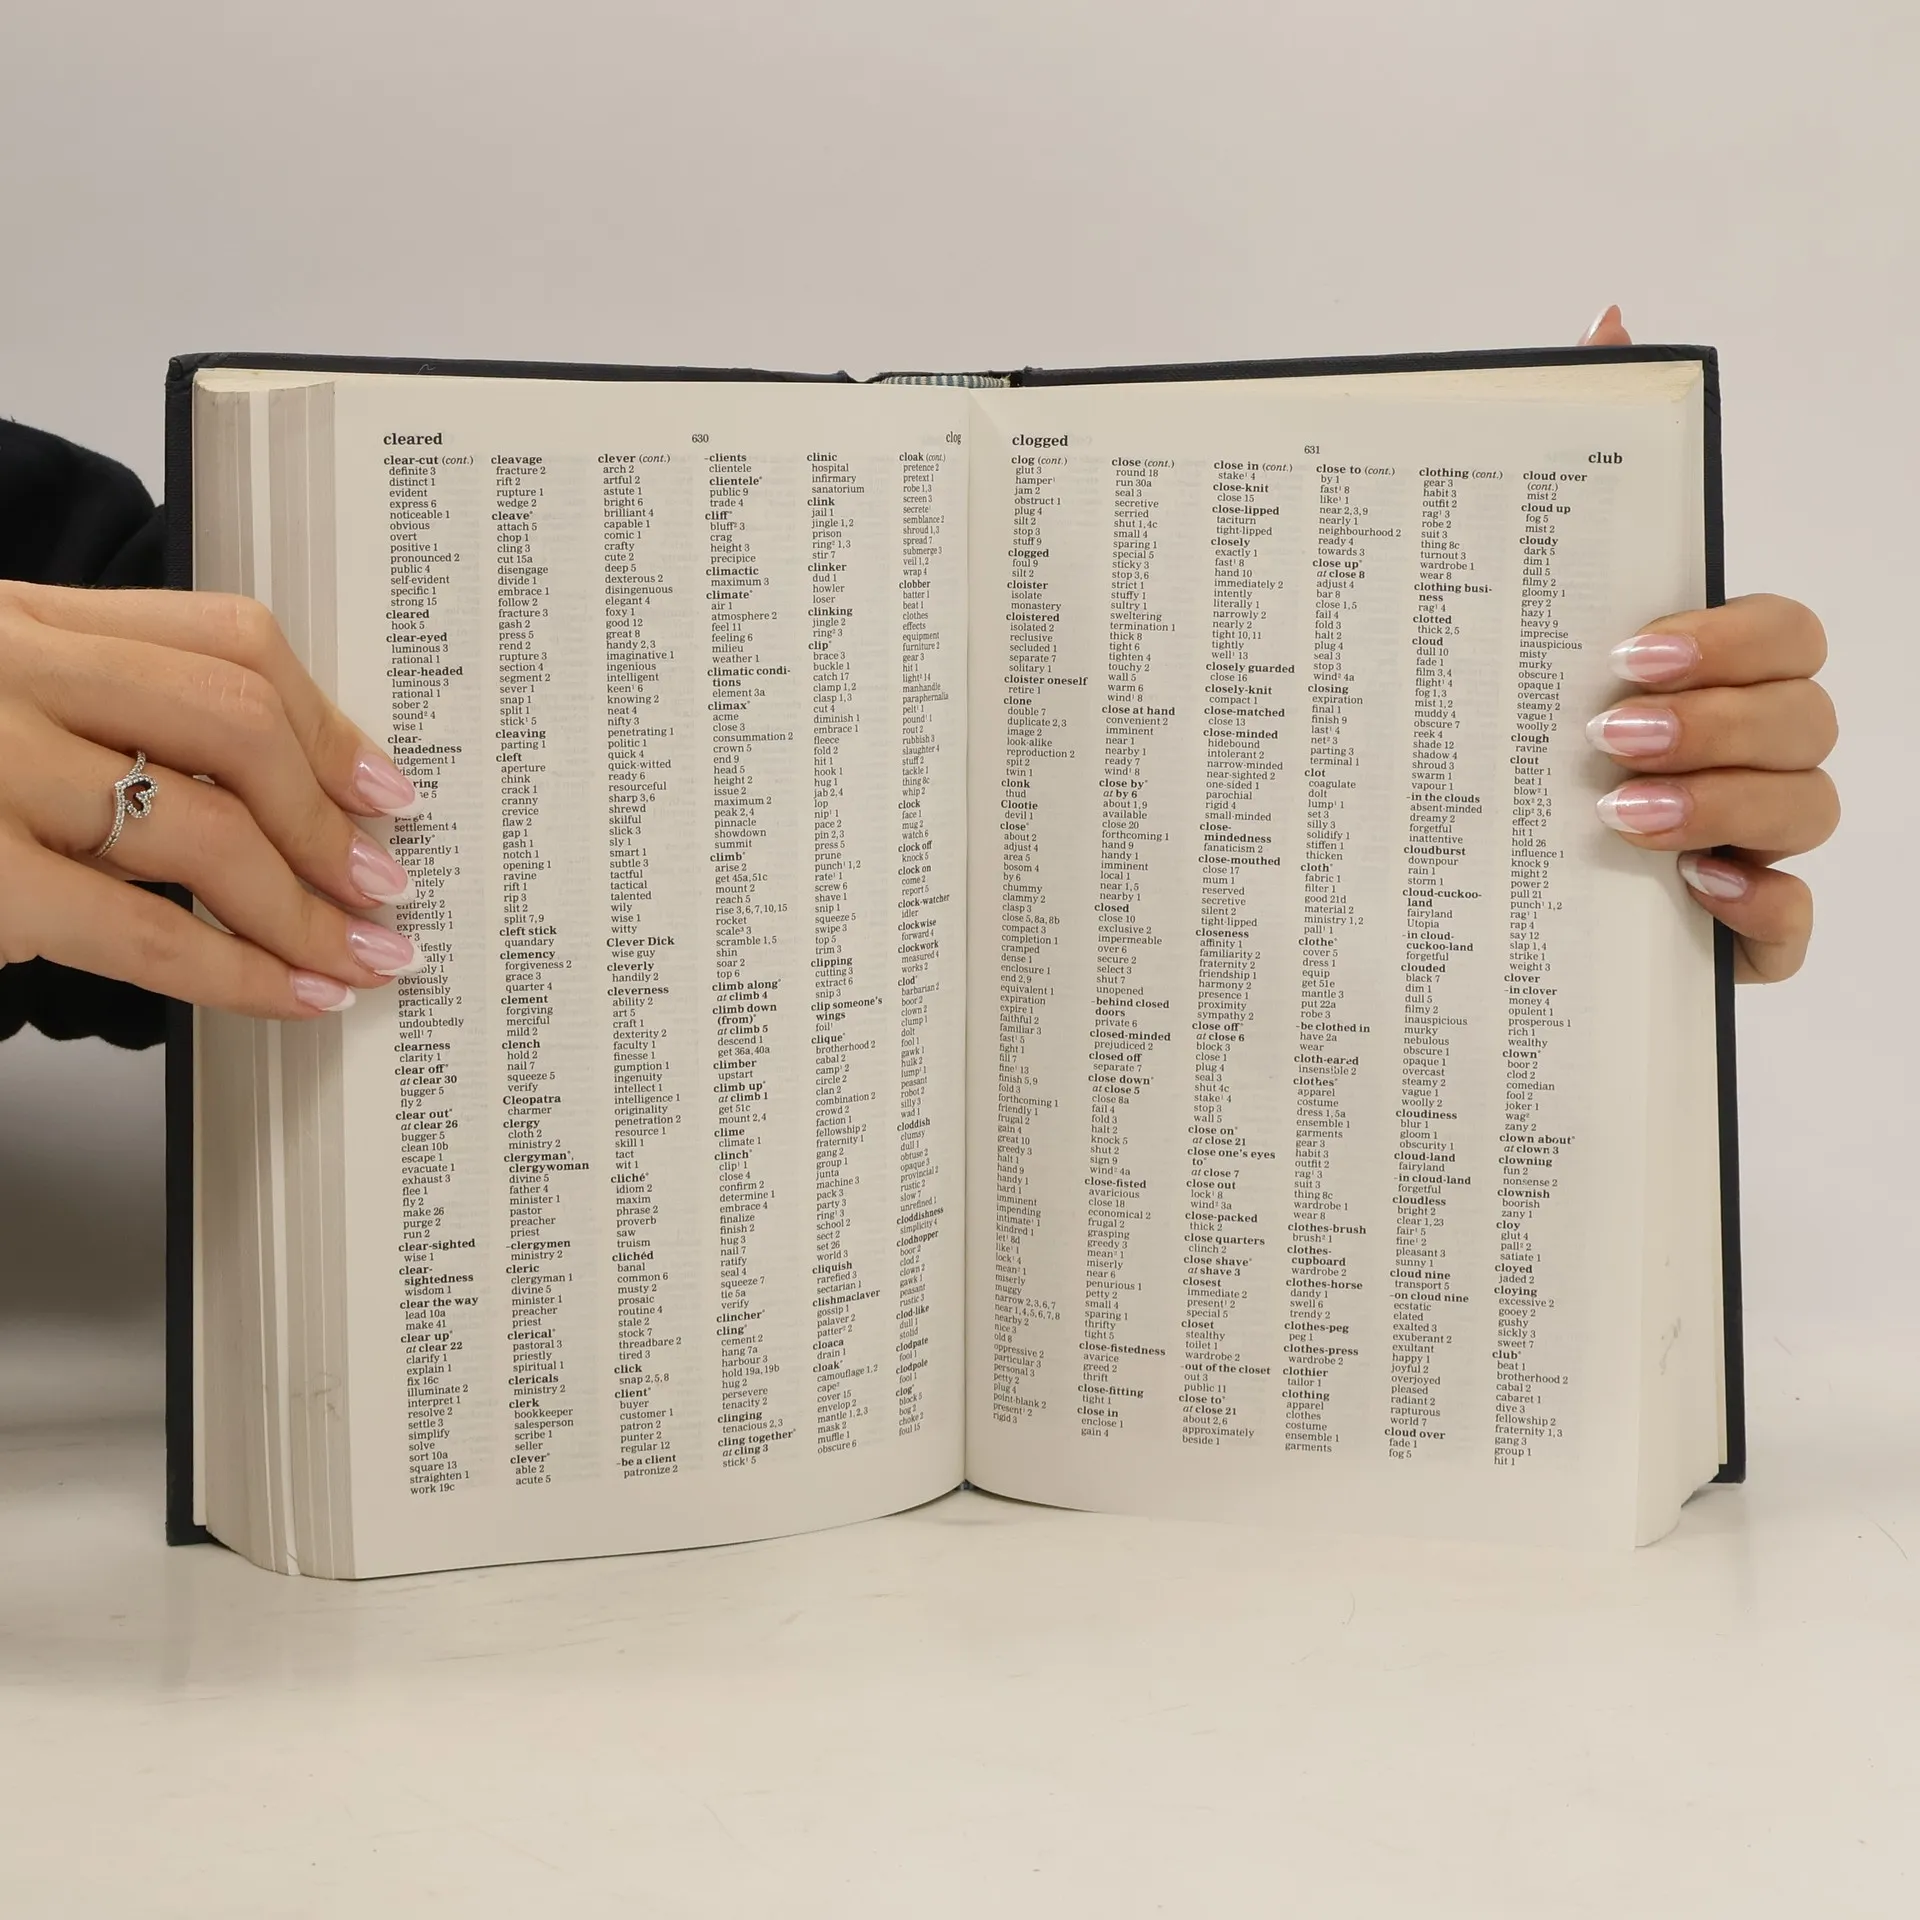 cleared
630
clog
clear-cut (cont.)
definite 3
distinct 1
evident
express 6
noticeable 1
obvious
overt
positive 1
pronounced 2
public 4
self-evident
specific 1
strong 15
cleared
hook 5
clear-eyed
luminous 3
rational 1
clear-headed
luminous 3
rational 1
sober 2
sound² 4
wise 1
clear-
headedness
judgement 1
settlement 4
clearly*
apparently 1
clear 18
entirely 2
evidently 1
expressly 1
obviously
ostensibly
practically 2
stark 1
undoubtedly
well¹ 7
clearness
clarity 1
clear off*
at clear 30
bugger 5
fly 2
clear out*
at clear 26
bugger 5
clean 10b
escape 1
evacuate 1
exhaust 3
flee 1
fly 2
make 26
purge 2
run 2
clear-sighted
wise 1
clear-
sightedness
wisdom 1
clear the way
lead 10a
make 41
clear up*
at clear 22
clarify 1
explain 1
fix 16c
illuminate 2
interpret 1
resolve 2
settle 3
simplify
solve
sort 10a
square 13
straighten 1
work 19c
cleavage
fracture 2
rift 2
rupture 1
wedge 2
cleave*
attach 5
chop 1
cling 3
cut 15a
disengage
divide 1
embrace 1
follow 2
fracture 3
gash 2
press 5
rend 2
rupture 3
section 4
segment 2
sever 1
snap 1
split 1
stick¹ 5
cleaving
parting 1
cleft
aperture
chink
crack 1
cranny
crevice
flaw 2
gap 1
gash 1
notch 1
opening 1
ravine
rift 1
rip 3
slit 2
split 7,9
cleft stick
quandary
clemency
forgiveness 2
grace 3
quarter 4
clement
forgiving
merciful
mild 2
clench
hold 2
nail 7
squeeze 5
verify
Cleopatra
charmer
clergy
cloth 2
ministry 2
clergyman*,
clergywoman
divine 5
father 4
minister 1
pastor
preacher
priest
-clergymen
ministry 2
cleric
clergyman 1
divine 5
minister 1
preacher
priest
clerical*
pastoral 3
priestly
spiritual 1
clericals
ministry 2
clerk
bookkeeper
salesperson
scribe 1
seller
clever*
able 2
acute 5
clever (cont.)
arch 2
artful 2
astute 1
bright 6
brilliant 4
capable 1
comic 1
crafty
cute 2
deep 5
dexterous 2
disingenuous
elegant 4
foxy 1
good 12
great 8
handy 2,3
imaginative 1
ingenious
intelligent
keen¹ 6
knowing 2
neat 4
nifty 3
penetrating 1
politic 1
quick 4
quick-witted
ready 6
resourceful
sharp 3,6
shrewd
skilful
slick 3
sly 1
smart 1
subtle 3
tactful
tactical
talented
wily
wise 1
witty
Clever Dick
wise guy
cleverly
handily 2
cleverness
ability 2
art 5
craft 1
dexterity 2
faculty 1
finesse 1
gumption 1
ingenuity
intellect 1
intelligence 1
originality
penetration 2
resource 1
skill 1
tact
wit 1
cliché*
idiom 2
maxim
phrase 2
proverb
saw
truism
clichéd
banal
common 6
musty 2
prosaic
routine 4
stale 2
stock 7
threadbare 2
tired 3
click
snap 2,5,8
client*
buyer
customer 1
patron 2
punter 2
regular 12
-be a client
patronize 2
-clients
clientele
clientele*
public 9
trade 4
cliff*
bluff² 3
crag
height 3
precipice
climactic
maximum 3
climate*
air 1
atmosphere 2
feel 11
feeling 6
milieu
weather 1
climatic condi-
tions
element 3a
climax*
acme
close 3
consummation 2
crown 5
end 9
head 5
height 2
issue 2
maximum 2
peak 2,4
pinnacle
showdown
summit
climb*
arise 2
get 45a,51c
mount 2
reach 5
rise 3,6,7,10,15
rocket
scale³ 3
scramble 1,5
shin
soar 2
top 6
climb along*
at climb 4
climb down
(from)*
at climb 5
descend 1
get 36a,40a
climber
upstart
climb up*
at climb 1
get 51c
mount 2,4
clime
climate 1
clinch*
clip¹ 1
close 4
confirm 2
determine 1
embrace 4
finalize
finish 2
hug 3
nail 7
ratify
seal 4
squeeze 7
tie 5a
verify
clincher*
cling*
cement 2
hang 7a
harbour 3
hold 19a,19b
hug 2
persevere
tenacity 2
clinging
tenacious 2,3
cling together*
at cling 3
stick¹ 5
clinic
hospital
infirmary
sanatorium
clink
jail 1
jingle 1,2
prison
ring² 1,3
stir 7
clinker
dud 1
howler
loser
clinking
jingle 2
ring² 3
clip*
brace 3
buckle 1
catch 17
clamp 1,2
clasp 1,3
cut 4
diminish 1
embrace 1
fleece
fold 2
hit 1
hook 1
hug 1
jab 2,4
lop
nip¹ 1
pace 2
pin 2,3
press 5
prune
punch¹ 1,2
rate¹ 1
screw 6
shave 1
snip 1
squeeze 5
swipe 3
top 5
trim 3
clipping
cutting 3
extract 6
snip 3
clip someone's
wings
foil¹
clique*
brotherhood 2
cabal 2
camp¹ 2
circle 2
clan 2
combination 2
crowd 2
faction 1
fellowship 2
fraternity 1
gang 2
group 1
junta
machine 3
pack 3
party 3
ring¹ 3
school 2
sect 2
set 26
world 3
cliquish
rarefied 3
sectarian 1
clishmaclaver
gossip 1
palaver 2
patter² 2
cloaca
drain 1
cloak*
camouflage 1,2
cape²
cover 15
envelop 2
mantle 1,2,3
mask 2
muffle 1
obscure 6
cloak (cont.)
pretence 2
pretext 1
robe 1,3
screen 3
secrete¹
semblance 2
shroud 1,3
spread 7
submerge 3
veil 1,2
wrap 4
clobber
batter 1
beat 1
clothes
effects
equipment
furniture 2
gear 3
hit 1
light¹ 14
manhandle
paraphernalia
pelt¹ 1
pound¹ 1
rout 2
rubbish 3
slaughter 4
stuff 2
tackle 1
thing 8c
whip 2
clock
face 1
mug 2
watch 6
clock off
knock 5
clock on
come 2
report 5
clock-watcher
idler
clockwise
forward 4
clockwork
measured 4
works 2
clod*
barbarian 2
boor 2
clown 2
clump 1
dolt
fool 1
gawk 1
hulk 2
lump¹ 1
peasant
robot 2
silly 3
wad 1
cloddish
clumsy
dull 1
obtuse 2
opaque 3
provincial 2
rustic 2
slow 7
unrefined 1
cloddishness
simplicity 4
clodhopper
boor 2
clod 2
clown 2
gawk 1
peasant
rustic 3
clod-like
dull 1
stolid
clodpate
fool 1
clodpole
fool 1
clog*
block 5
bog 2
choke 2
foul 15
clogged
631
club
clog (cont.)
glut 3
hamper¹
jam 2
obstruct 1
plug 4
silt 2
stop 3
stuff 9
clogged
foul 9
silt 2
cloister
isolate
monastery
cloistered
isolated 2
reclusive
secluded 1
separate 7
solitary 1
cloister oneself
retire 1
clone
double 7
duplicate 2,3
image 2
look-alike
reproduction 2
spit 2
twin 1
clonk
thud
Clootie
devil 1
close*
about 2
adjust 4
area 5
bosom 4
by 6
chummy
clammy 2
clasp 3
close 5,8a,8b
compact 3
completion 1
cramped
dense 1
enclosure 1
end 2,9
equivalent 1
expiration
expire 1
faithful 2
familiar 3
fast¹ 5
fight 1
fill 7
fine¹ 13
finish 5,9
fold 3
forthcoming 1
friendly 1
frugal 2
gain 4
great 10
greedy 3
halt 1
hand 9
handy 1
hard 1
imminent
impending
intimate¹ 1
kindred 1
let¹ 8d
like¹ 1
lock¹ 4
mean² 1
miserly
muggy
narrow 2,3,6,7
near 1,4,5,6,7,8
nearby 2
nice 3
old 8
oppressive 2
particular 3
personal 3
petty 2
plug 4
point-blank 2
present¹ 2
rigid 3
close (cont.)
round 18
run 30a
seal 3
secretive
serried
shut 1,4c
small 4
sparing 1
special 5
sticky 3
stop 3,6
strict 1
stuffy 1
sultry 1
sweltering
termination 1
thick 8
tight 6
tighten 4
touchy 2
wall 5
warm 6
wind¹ 8
close at hand
convenient 2
imminent
near 1
nearby 1
ready 7
wind¹ 8
close by*
at by 6
about 1,9
available
close 20
forthcoming 1
hand 9
handy 1
imminent
local 1
near 1,5
nearby 1
closed
close 10
exclusive 2
impermeable
over 6
secure 2
select 3
shut 7
unopened
-behind closed
doors
private 6
closed-minded
prejudiced 2
closed off
separate 7
close down*
at close 5
close 8a
fail 4
fold 3
halt 2
knock 5
shut 2
sign 9
wind² 4a
close-fisted
avaricious
close 18
economical 2
frugal 2
grasping
greedy 3
mean² 1
miserly
near 6
penurious 1
petty 2
small 4
sparing 1
thrifty
tight 5
close-fistedness
avarice
greed 2
thrift
close-fitting
tight 1
close in
enclose 1
gain 4
close in (cont.)
stake¹ 4
close-knit
close 15
close-lipped
taciturn
tight-lipped
closely
exactly 1
fast¹ 8
hand 10
immediately 2
intently
literally 1
narrowly 2
nearly 2
tight 10,11
tightly
well¹ 13
closely guarded
close 16
closely-knit
compact 1
close-matched
close 13
close-minded
hidebound
intolerant 2
narrow-minded
near-sighted 2
one-sided 1
parochial
rigid 4
small-minded
close-
mindedness
fanaticism 2
close-mouthed
close 17
mum 1
reserved
secretive
silent 2
tight-lipped
closeness
affinity 1
familiarity 2
fraternity 2
friendship 1
harmony 2
presence 1
proximity
sympathy 2
close off*
at close 6
block 3
close 1
plug 4
seal 3
shut 4c
stake¹ 4
stop 3
wall 5
close on*
at close 21
close one's eyes
to*
at close 7
close out
lock¹ 8
wind² 3a
close-packed
thick 2
close quarters
clinch 2
close shave*
at shave 3
closest
immediate 2
present¹ 2
special 5
closet
stealthy
toilet 1
wardrobe 2
-out of the closet
out 3
public 11
close to*
at close 21
about 2,6
approximately
beside 1
close to (cont.)
by 1
fast¹ 8
like¹ 1
near 2,3,9
nearly 1
neighbourhood 2
ready 4
towards 3
close up*
at close 8
adjust 4
bar 8
close 1,5
fail 4
fold 3
halt 2
plug 4
seal 3
stop 3
wind² 4a
closing
expiration
final 1
finish 9
last¹ 4
net² 3
parting 3
terminal 1
clot
coagulate
dolt
lump¹ 1
set 3
silly 3
solidify 1
stiffen 1
thicken
cloth*
fabric 1
filter 1
good 21d
material 2
ministry 1,2
pall¹ 1
clothe*
cover 5
dress 1
equip
get 51e
mantle 3
put 22a
robe 3
-be clothed in
have 2a
wear
cloth-eared
insensible 2
clothes*
apparel
costume
dress 1,5a
ensemble 1
garments
gear 3
habit 3
outfit 2
rag¹ 3
suit 3
thing 8c
wardrobe 1
wear 8
clothes-brush
brush² 1
clothes-
cupboard
wardrobe 2
clothes-horse
dandy 1
swell 6
trendy 2
clothes-peg
peg 1
clothes-press
wardrobe 2
clothier
tailor 1
clothing
apparel
clothes
costume
ensemble 1
garments
clothing (cont.)
gear 3
habit 3
outfit 2
rag¹ 3
robe 2
suit 3
thing 8c
turnout 3
wardrobe 1
wear 8
clothing busi-
ness
rag¹ 4
clotted
thick 2,5
cloud
dull 10
fade 1
film 3,4
flight¹ 4
fog 1,3
mist 1,2
muddy 4
obscure 7
reek 4
shade 12
shadow 4
shroud 3
swarm 1
vapour 1
-in the clouds
absent-minded
dreamy 2
forgetful
inattentive
cloudburst
downpour
rain 1
storm 1
cloud-cuckoo-
land
fairyland
Utopia
-in cloud-
cuckoo-land
forgetful
clouded
black 7
dim 1
dull 5
filmy 2
inauspicious
murky
nebulous
obscure 1
opaque 1
overcast
steamy 2
vague 1
woolly 2
cloudiness
blur 1
gloom 1
obscurity 1
cloud-land
fairyland
-in cloud-land
forgetful
cloudless
bright 2
clear 1,23
fair¹ 5
fine¹ 2
pleasant 3
sunny 1
cloud nine
transport 5
-on cloud nine
ecstatic
elated
exalted 3
exuberant 2
exultant
happy 1
joyful 2
overjoyed
pleased
radiant 2
rapturous
world 7
cloud over
fade 1
fog 5
cloud over
(cont.)
mist 2
cloud up
fog 5
mist 2
cloudy
dark 5
dim 1
dull 5
filmy 2
gloomy 1
grey 2
hazy 1
heavy 9
imprecise
inauspicious
misty
murky
obscure 1
opaque 1
overcast
steamy 2
vague 1
woolly 2
clough
ravine
clout
batter 1
beat 1
blow² 1
box² 2,3
clip² 3,6
effect 2
hit 1
hold 26
influence 1
knock 9
might 2
power 2
pull 21
punch¹ 1,2
rag¹ 1
rap 4
say 12
slap 1,4
strike 1
weight 3
clover
-in clover
money 4
opulent 1
prosperous 1
rich 1
wealthy
clown*
boor 2
clod 2
comedian
fool 2
joker 1
wag²
zany 2
clown about*
at clown 3
clowning
fun 2
nonsense 2
clownish
boorish
zany 1
cloy
glut 4
pall² 2
satiate 1
cloyed
jaded 2
cloying
excessive 2
gooey 2
gushy
sickly 3
sweet 7
club*
beat 1
brotherhood 2
cabal 2
cabaret 1
dive 3
fellowship 2
fraternity 1,3
gang 3
group 1
hit 1